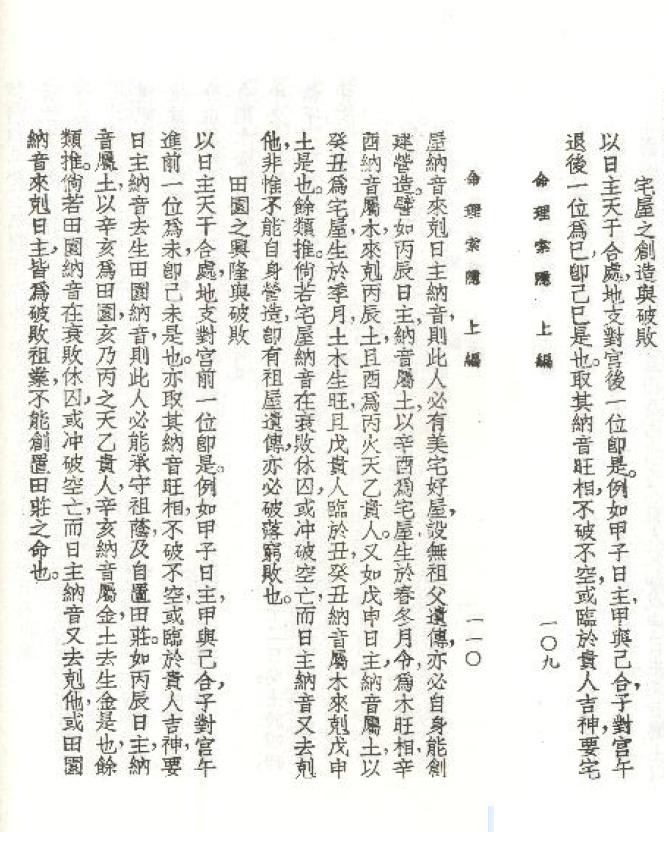 宅屋之創造與破敗
以日主天干合處，地支對宮後一位卽是。例如甲子日主，甲與己合，子對宮午
退後一位爲巳，卽己巳是也。取其納音旺相，不破不空，或臨於貴人吉神，要宅
一〇九
命理索隱　上編
命理索隱　上編
一一〇
屋納音來剋日主納音，則此人必有美宅好屋，設無祖父遺傳，亦必自身能創
建營造。譬如丙辰日主，納音屬土，以辛酉爲宅屋，生於春冬月令，爲木旺相，辛
酉納音屬木，來剋丙辰土，且酉爲丙火天乙貴人。又如戊申日主，納音屬土，以
癸丑爲宅屋，生於季月，土木生旺，且戊貴人臨於丑，癸丑納音屬木來剋戊申
土是也。餘類推。倘若宅屋納音在衰敗休囚，或冲破空亡，而日主納音又去剋
他，非惟不能自身營造，卽有祖屋遺傳，亦必破落窮敗也。
田園之興隆與破敗
以日主天干合處，地支對宮前一位卽是。例如甲子日主，甲與己合，子對宮午，
進前一位爲未，卽己未是也。亦取其納音旺相，不破不空，或臨於貴人吉神，要
日主納音去生田園納音，則此人必能承守祖蔭，及自置田莊。如丙辰日主，納
音屬土，以辛亥爲田園，亥乃丙之天乙貴人，辛亥納音屬金，土去生金是也，餘
類推。倘若田園納音在衰敗休囚，或冲破空亡，而日主納音又去剋他，或田園
納音來剋日主，皆爲破敗祖業，不能創置田莊之命也。